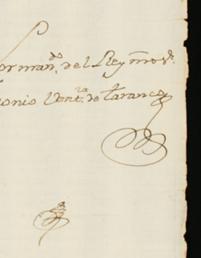 por man.do del Rey nro s.r
onio Vent.ra de Taranco